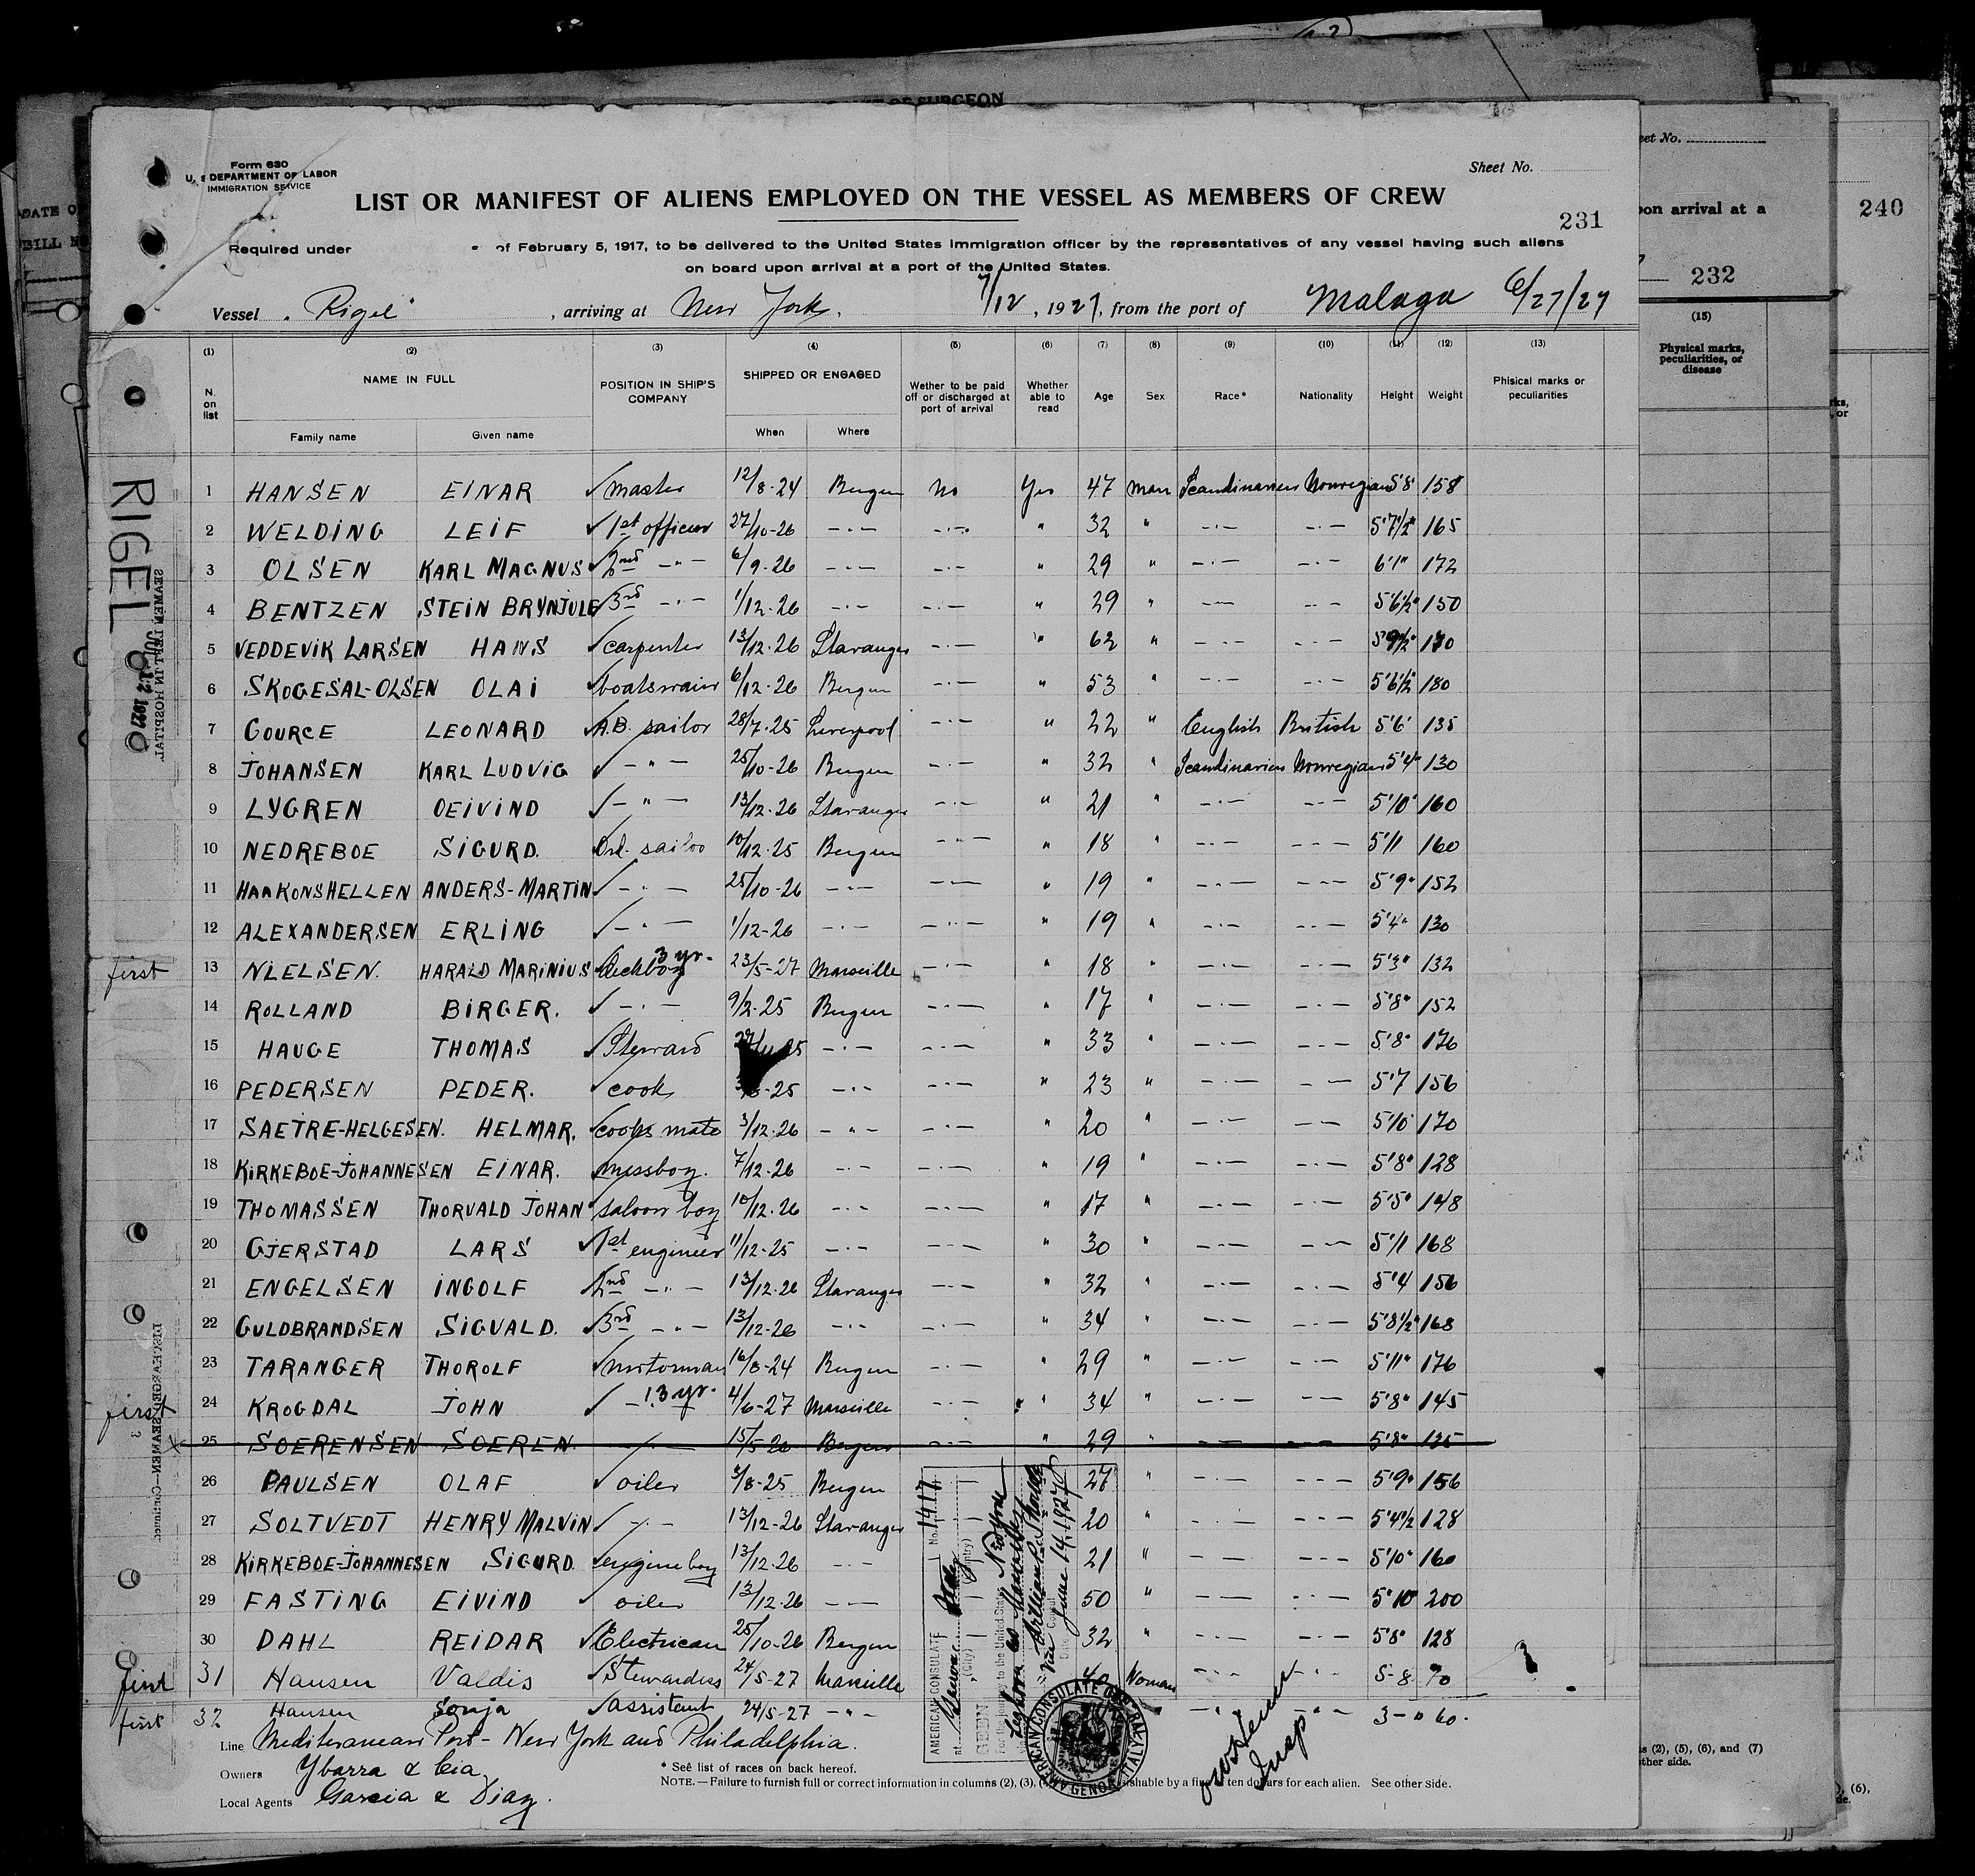 OF SURGEON
Form 630
U. S. DEPARTMENT OF LABOR
IMMIGRATION SERVICE
Sheet No.
LIST OR MANIFEST OF ALIENS EMPLOYED ON THE VESSEL AS MEMBERS OF CREW
231
Required under of February 5, 1917, to be delivered to the United States Immigration officer by the representatives of any vessel having such aliens
on board upon arrival at a port of the United States.
Vessel "Rigel", arriving at New York, 7/12, 1927, from the port of Malaga 6/27/27
(1) (2) (3) (4) (5) (6) (7) (8) (9) (10) (11) (12) (13)
N. on list NAME IN FULL POSITION IN SHIP'S COMPANY SHIPPED OR ENGAGED Wether to be paid off or discharged at port of arrival Whether able to read Age Sex Race* Nationality Height Weight Phisical marks or peculiarities
Family name Given name When Where
1 HANSEN EINAR ✓ master 12/8-24 Bergen No Yes 47 man Scandinavien Norwegian 5'8" 158
2 WELDING LEIF ✓ 1st officer 27/10-26 -"- -"- " 32 " -"- -"- 5'7½" 165
3 OLSEN KARL MAGNUS ✓ 2nd -"- 6/9-26 -"- -"- " 29 " -"- -"- 6'1" 172
4 BENTZEN STEIN BRYNJULF ✓ 3rd -"- 1/12-26 -"- -"- " 29 " -"- -"- 5'6½" 150
5 VEDDEVIK LARSEN HANS ✓ carpenter 13/12-26 Stavanger -"- " 62 " -"- -"- 5'9½" 170
6 SKOGESAL-OLSEN OLAI ✓ boatswain 6/12-26 Bergen -"- " 53 " -"- -"- 5'6½" 180
7 GOURCE LEONARD ✓ A.B. sailor 28/7-25 Liverpool -"- " 22 " English British 5'6" 135
8 JOHANSEN KARL LUDVIG ✓ -"- 25/10-26 Bergen -"- " 32 " Scandinavien Norwegian 5'4" 130
9 LYGREN OEIVIND ✓ -"- 13/12-26 Stavanger -"- " 21 " -"- -"- 5'10" 160
10 NEDREBOE SIGURD. Ord. sailor 10/12-25 Bergen -"- " 18 " -"- -"- 5'11 160
11 HAAKONSHELLEN ANDERS-MARTIN ✓ -"- 25/10-26 -"- -"- " 19 " -"- -"- 5'9" 152
12 ALEXANDERSEN ERLING ✓ -"- 1/12-26 -"- -"- " 19 " -"- -"- 5'4" 130
first 13 NIELSEN. HARALD MARINIUS ✓ deckboy 3 yr. 23/5-27 Marseille -"- " 18 " -"- -"- 5'3" 132
14 ROLLAND BIRGER. ✓ -"- 9/2-25 Bergen -"- " 17 " -"- -"- 5'8" 152
15 HAUGE THOMAS ✓ Steward -"- -"- " 33 " -"- -"- 5'8" 176
16 PEDERSEN PEDER. ✓ cook -25 -"- " 23 " -"- -"- 5'7 156
17 SAETRE-HELGESEN. HELMAR. ✓ cooks mate 3/12-26 -"- -"- " 20 " -"- -"- 5'10" 170
18 KIRKEBOE-JOHANNESEN EINAR. ✓ messboy. 7/12-26 -"- -"- " 19 " -"- -"- 5'8" 128
19 THOMASSEN THORVALD JOHAN ✓ saloon boy 10/12-26 -"- -"- " 17 " -"- -"- 5'5" 148
20 GJERSTAD LARS ✓ 1st engineer 11/12-25 -"- -"- " 30 " -"- -"- 5'11 168
21 ENGELSEN INGOLF ✓ 2nd -"- 13/12-26 Stavanger -"- " 32 " -"- -"- 5'4 156
22 GULDBRANDSEN SIGVALD. ✓ 3rd -"- 13/12-26 -"- -"- " 34 " -"- -"- 5'8½" 168
23 TARANGER THOROLF ✓ motorman 16/8-24 Bergen -"- " 29 " -"- -"- 5'11" 176
first 24 KROGDAL JOHN ✓ -"- 13 yr. 4/6-27 Marseille -"- " 34 " -"- -"- 5'8" 145
25 SOERENSEN SOEREN -"- 15/5-26 Bergen -"- " 29 " -"- -"- 5'8" 135
26 PAULSEN OLAF ✓ oiler 3/8-25 Bergen 27 " -"- -"- 5'9" 156
27 SOLTVEDT HENRY MALVIN ✓ -"- 13/12-26 Stavanger 20 " -"- -"- 5'4½ 128
28 KIRKEBOE-JOHANNESEN SIGURD ✓ engine boy 13/12-26 -"- 21 " -"- -"- 5'10" 160
29 FASTING EIVIND oiler 13/12-26 -"- 50 " -"- -"- 5'10" 200
30 DAHL REIDAR ✓ Electrican 25/10-26 Bergen 32 " -"- -"- 5'8" 128
first 31 Hansen Valdis ✓ Stewardess 24/5-27 Marseille 40 Woman -"- -"- 5-8 70
first 32 Hansen Sonja ✓ assistent 24/5-27 -"- -"- -"- 3-" 60.
Line Mediteranean Port - New York and Philadelphia.
Owners Ybarra & Cia.
Local Agents Garcia & Diaz.
* See list of races on back hereof.
NOTE.—Failure to furnish full or correct information in columns (2), (3), punishable by a fine of ten dollars for each alien. See other side.
RIGEL
SEAMEN LEFT IN HOSPITAL
DISCHARGED SEAMEN—Continued.
AMERICAN CONSULATE No. 1417
at Genoa, Italy
(City) (Country)
SEEN
For the journey to the United States
Leghorn
William P.
Vice Consul
June 14, 1927
AMERICAN CONSULATE GENERAL
GENOA ITALY
Insp
DATE O
BILL
Sheet No.
upon arrival at a
232
(15)
Physical marks, peculiarities, or disease
s (2), (5), (6), and (7)
other side.
240